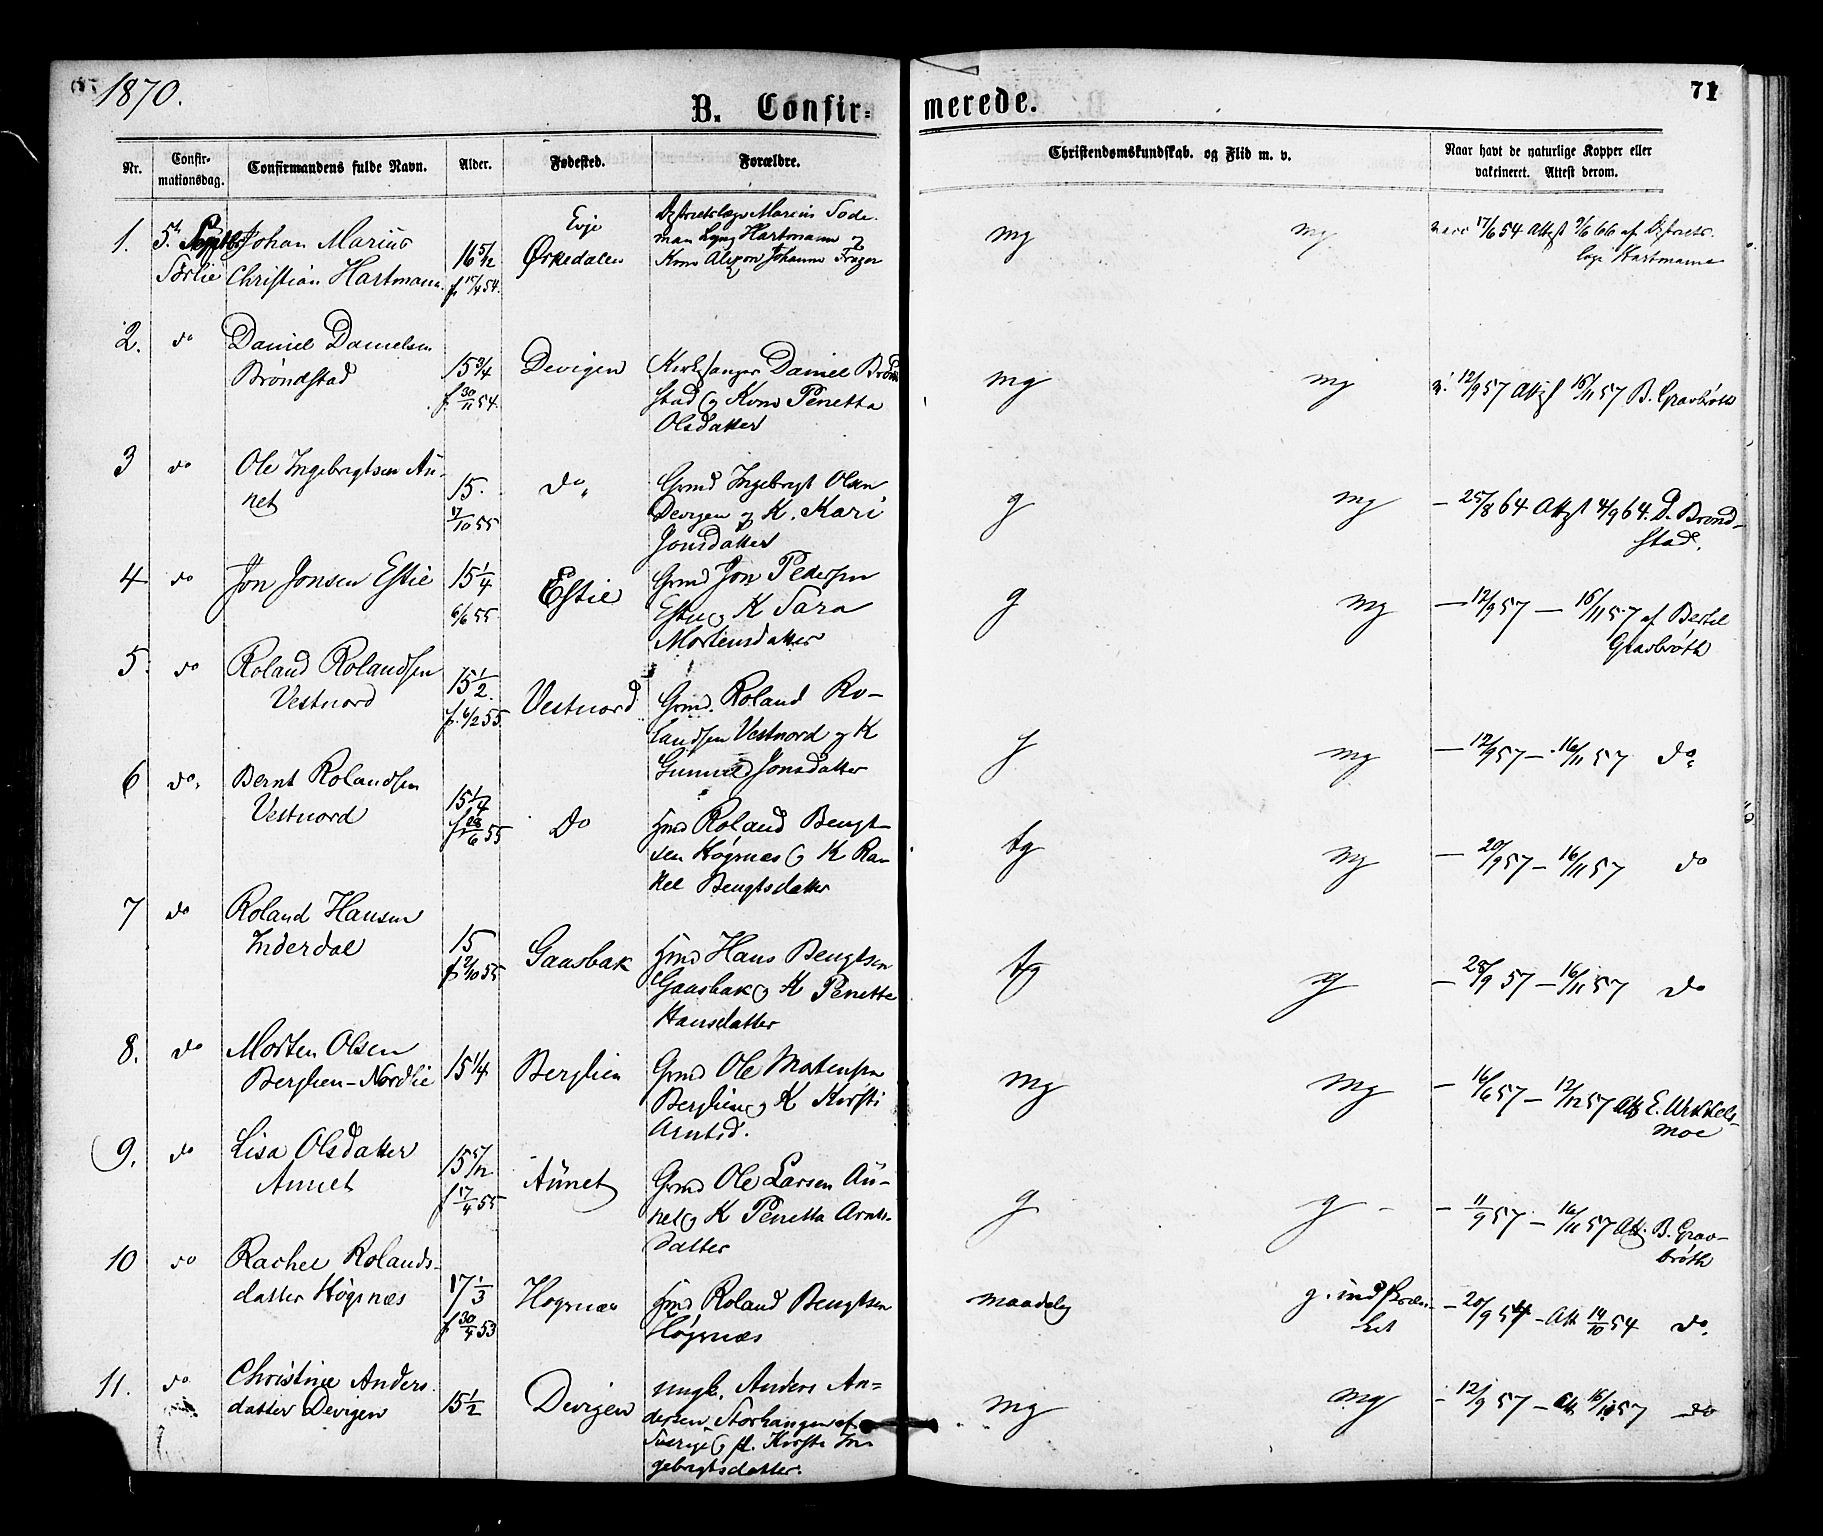 1870.
71
B. Confir= merede.
Nr.
Confir-
mationsdag.
Confirmandens fulde Navn.
Alder.
Fødested.
Forældre.
Christendomskundskab. og Flid m. v.
Naar havt de naturlige Kopper eller
vakcineret. Attest derom.
1. 5t. Sørlie Johan Marius
Christian Hartmann
16 5/12
f 54.
Evje
Ørkedalen
Marius
man Lyng Hartmann og
Kone Johanne
mg mg
17/6 54 Attest 9/6 66 af
Hartmann
2. do Daniel Danielsen
Brøndstad
15 3/4
f. 30/11 54.
Devigen
Kirkesanger Daniel Brønd
stad og Kone Penetta
Olsdatter
mg mg
12/9 57 Attest 16/11 57 B. Gravbrøth
3 do Ole Ingebrigtsen Au-
net
15.
17/10 55
do,,
Grmd Ingebrigt Olsen
Devigen og K. Kari
Jonsdatter
g mg
— 25/8 64 Attest 4/9 64. D. Brønd-
stad.
4 do Jon Jonsen Estie
15 1/4
6/6 55
Estie
Grmd Jon Pedersen
Estie og K Sara
Mortensdatter
g mg
— 12/9 57 — 16/11 57 af Bertel
Gravbrøth
5. do Roland Rolandsen
Vestnord
15 1/2
f. 6/2 55.
Vestnord
Grmd. Roland Ro-
landsen Vestnord og K
Gunnild Jonsdatter
g mg
— 12/9 57 — 16/11 57 do
6 do, Bernt Rolandsen
Vestnord
15 1/4
f 28/6 55
Do
Hmd Roland Bengt-
sen Høgnæs og K Ra-
kel Bengtsdatter
tg mg
— 20/9 57 — 16/11 57 do
7 do Roland Hansen
Inderdal
15
f 2/10 55
Gaasbak
Hmd Hans Bengtsen
Gaasbak og K Penette
Hansdatter
tg g
— 28/9 57 — 16/11 57 do
8. do Morten Olsen
Berglien-Nordlie
15 1/4
Berglien
Grmd Ole Mortensen
Berglien og K Kirsti
Arntsd.
mg mg
— 16/6 57 — 12/12 57 Att E.
moe
9. do Lisa Olsdatter
Aunet
15 5/12
f 17/4 55
Aunet
Grmd Ole Larsen Au-
net og K Penetta Arnts-
datter
g g -
— 11/9 57 — 16/11 57 Att. B. Grav-
brøth
10 do Rachel Rolands-
datter Høgnæs
17 1/3
f 30/4 53
Høgnæs
Hmd Roland Bengtsen
Høgnæs
maadelig g.
— 20/9 54 — Att 14/10 54 do.
11. do Christine Anders-
datter Devigen
15 1/2
Devigen
ungk. Anders An=
dersen Storhaugen af
Sverige og p. Kirsti In-
gebrigtsdatter.
mg mg
— 12/9 57 — Att 16/11 57 do